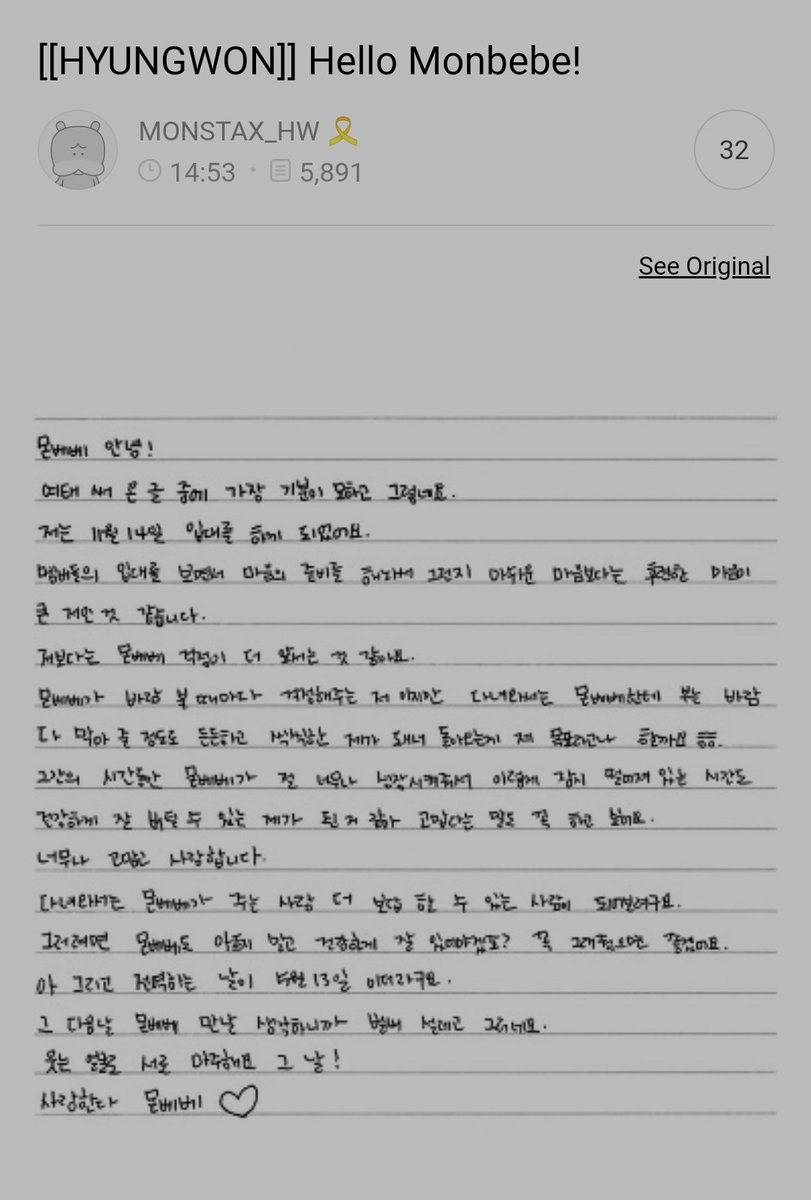 [[HYUNGWON]] Hello Monbebe!
MONSTAX_HW
14:53 · 5,891
32
See Original
몬베베 안녕!
여태 써 온 글 중에 가장 기분이 묘하고 그렇네요.
저는 11월 14일 입대를 하게 되었어요.
멤버들의 입대를 보면서 마음의 준비를 해놔서 그런지 아쉬운 마음보다는 후련한 마음이
큰 저인 것 같습니다.
저보다는 몬베베 걱정이 더 앞서는 것 같아요.
몬베베가 바람 불 때마다 걱정해주는 저 이지만 다녀와서는 몬베베한테 부는 바람
다 막아 줄 정도로 든든하고 씩씩한 제가 돼서 돌아오는게 제 목표라고나 할까요 ㅎㅎ.
그간의 시간동안 몬베베가 절 너무나 성장시켜줘서 이렇게 잠시 떨어져 있는 시간도
건강하게 잘 버틸 수 있는 제가 된 거 같아 고맙다는 말도 꼭 하고 싶어요.
너무나 고맙고 사랑합니다.
다녀와서는 몬베베가 주는 사랑 더 보답 할 수 있는 사람이 되어보려구요.
그러려면 몬베베도 아프지 말고 건강하게 잘 있어야겠죠? 꼭 그래줬으면 좋겠어요.
아 그리고 전역하는 날이 5월 13일 이더라구요.
그 다음날 몬베베 만날 생각하니까 벌써 설레고 그러네요.
웃는 얼굴로 서로 마주해요 그 날!
사랑한다 몬베베 ♡